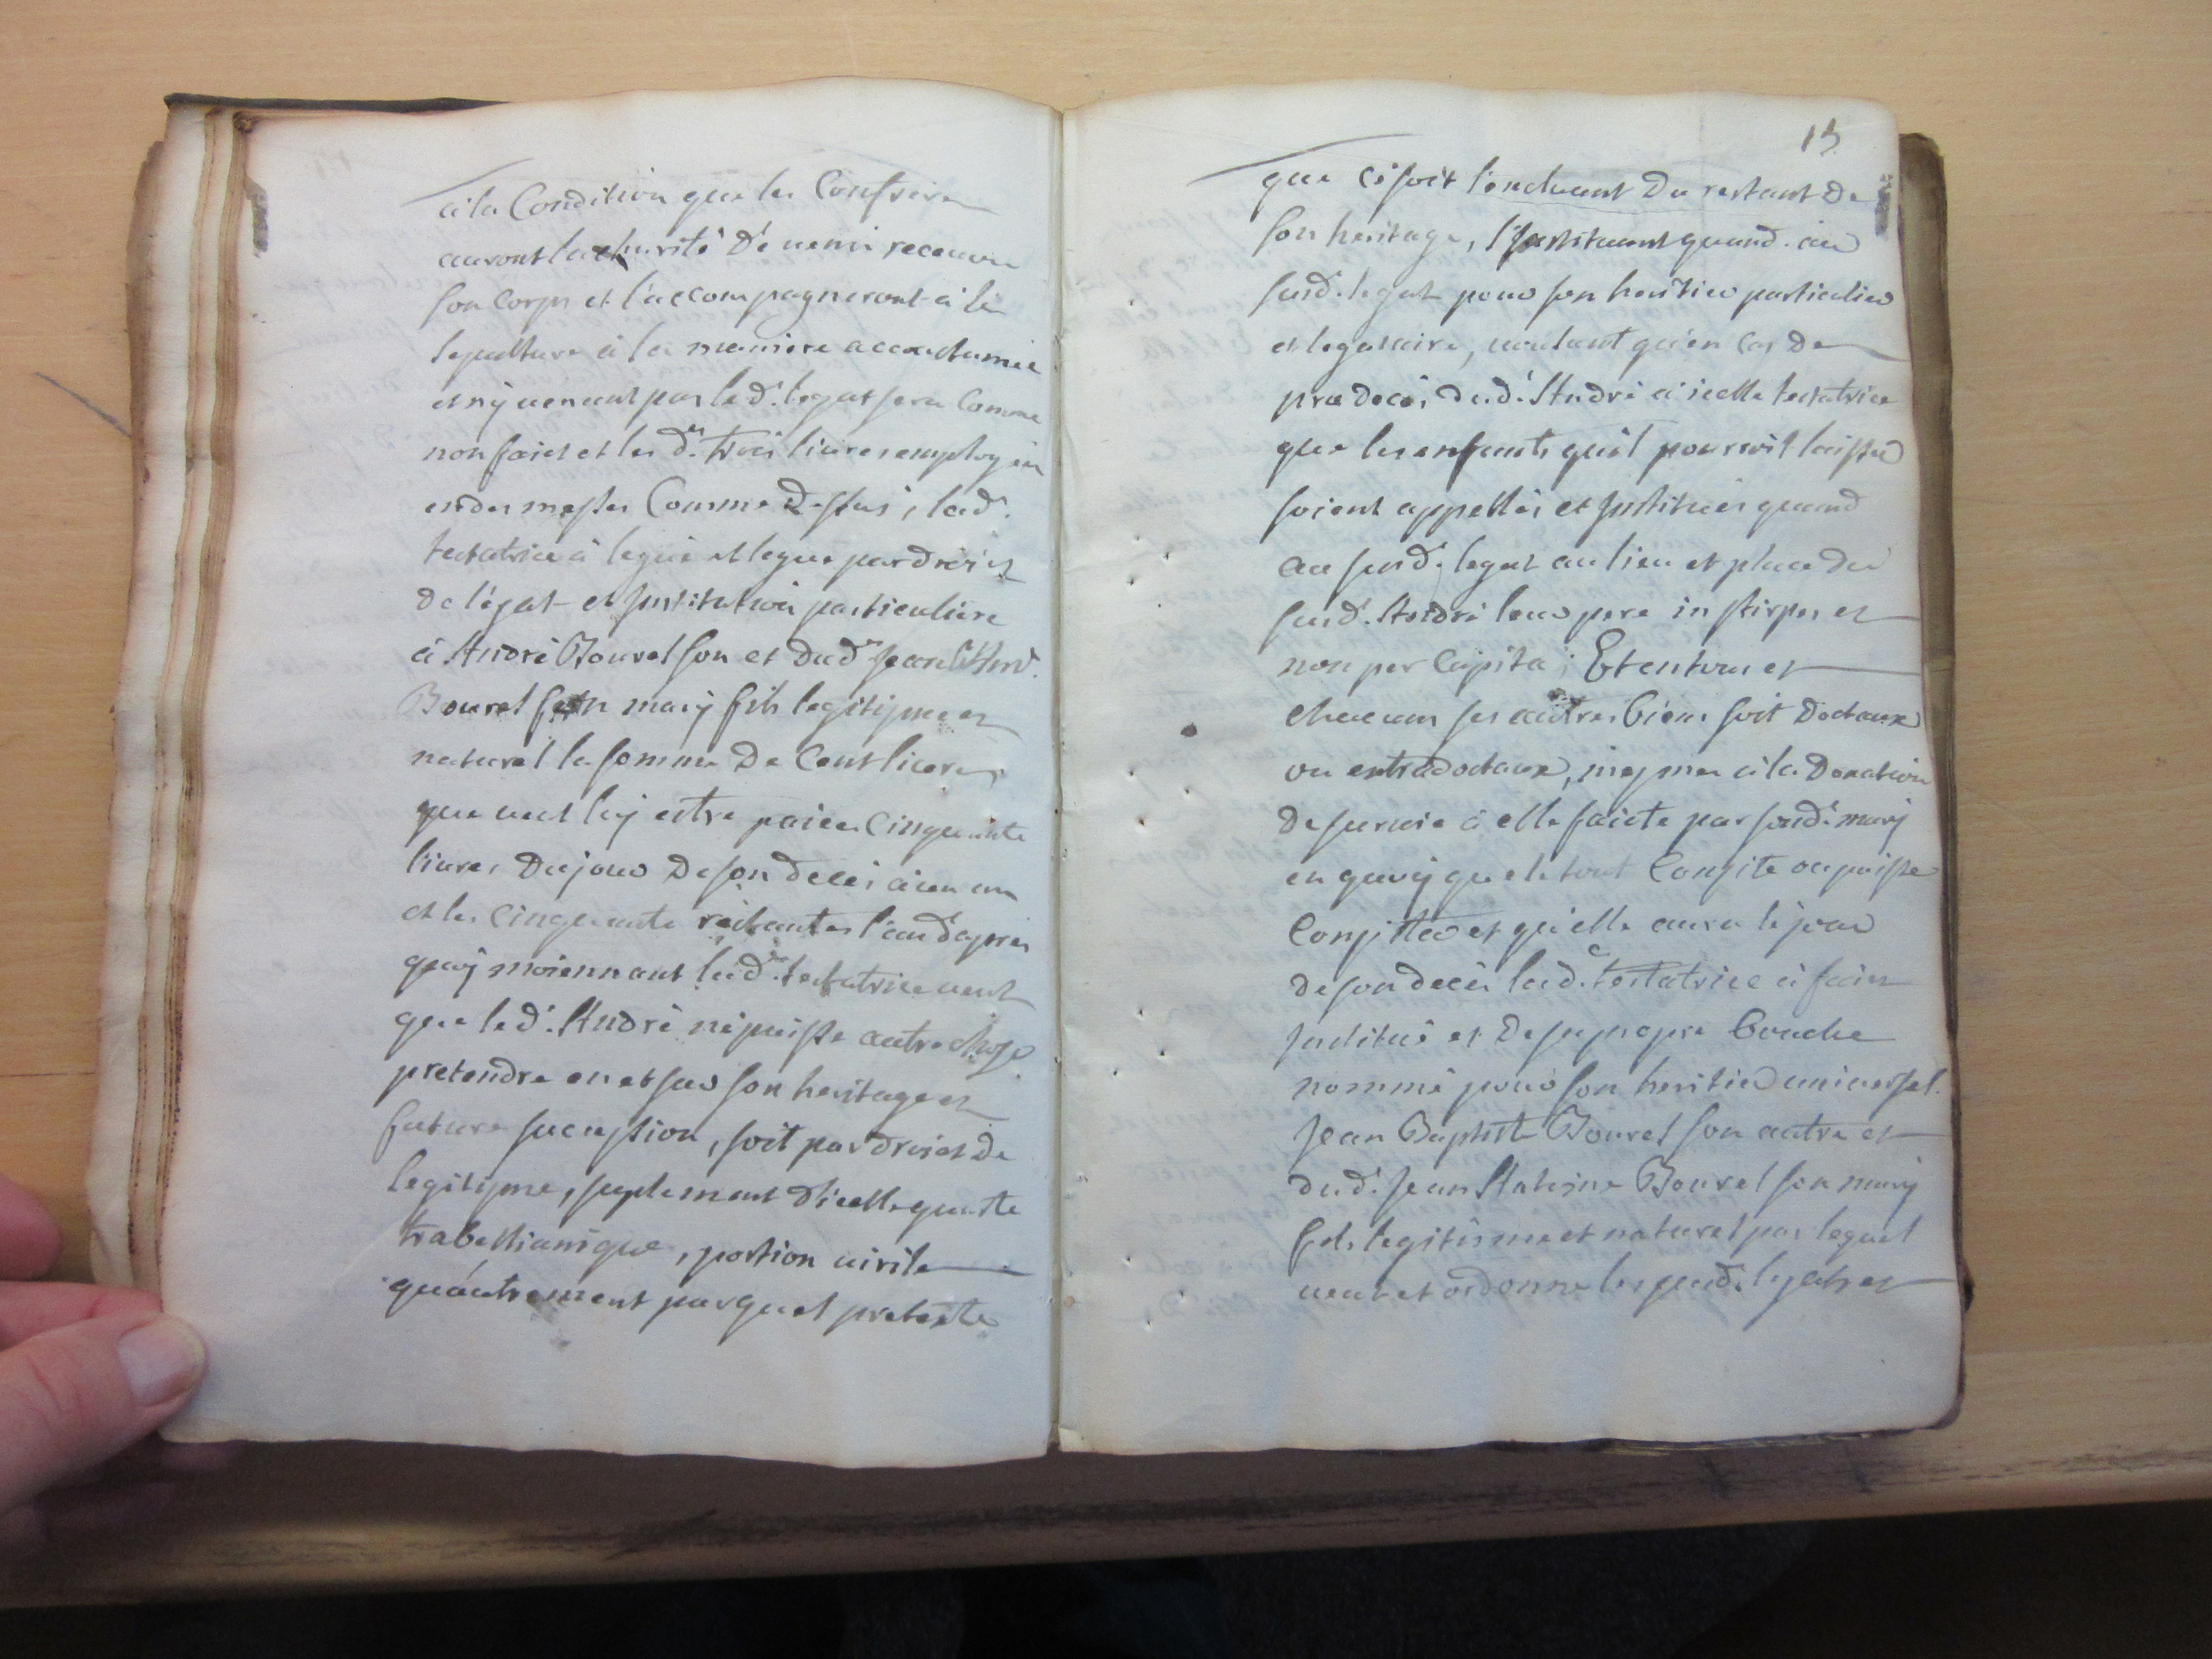 à la Condition que les Confreres
auront la charité de venir recevoir
son Corps et l'accompagneront à la
sepulture à la maniere accoutumée
et n'y venant pas led. legat sera Comme
non faict et les d. trois livres employées
en des messes Comme dessus, lad.
testatrice à legué et legue par droict
de légat et Institution particuliere
à André Bourel son et dud. Jean
Bourel son mary fils legitijme et
naturel la somme De Cent livres
que veut luy estre paiées Cinquante
livres Du jour De son decés à un an
et les Cinquante restantes l'an d'apres
quoy moiennant lad. testatrice veut
que led. André ne puisse autre chose
pretendre en et sur son heritage et
future sucession, soit par droict de
legitijme, suplement d'icelle quarte
trabellianique, portion virile
qu'autrement par quel pretexte
15
que ce soit l'excluant Du restant De
son heritage, l'Instituant quand. au
susd. legat pour son heritier particulier
et legataire, voulant qu'en Cas De
prædecés dud. André à icelle testatrice
que les enfants qu'il pourroit laisser
soient appellés et Institués quand
au susd. legat au lieu et place du
susd. André leur pere in stirpes et
non per Capita; Et en tous et
Chacuns ses autres biens soit Dotaux
ou extradotaux, mesmes à la Donation
De survie à elle faicte par sond. mary
en quoy que le tout Consite ou puisse
Consister et qu'elle aura le jour
de son decés lad. testatrice à faict
Institué et De sa propre bouche
nommé pour son heritier universel.
Jean Baptiste Bourel son autre et
dud. Jean Antoine Bourel son mary
fils legitime et naturel par lequel
veut et ordonne les susd. legats et